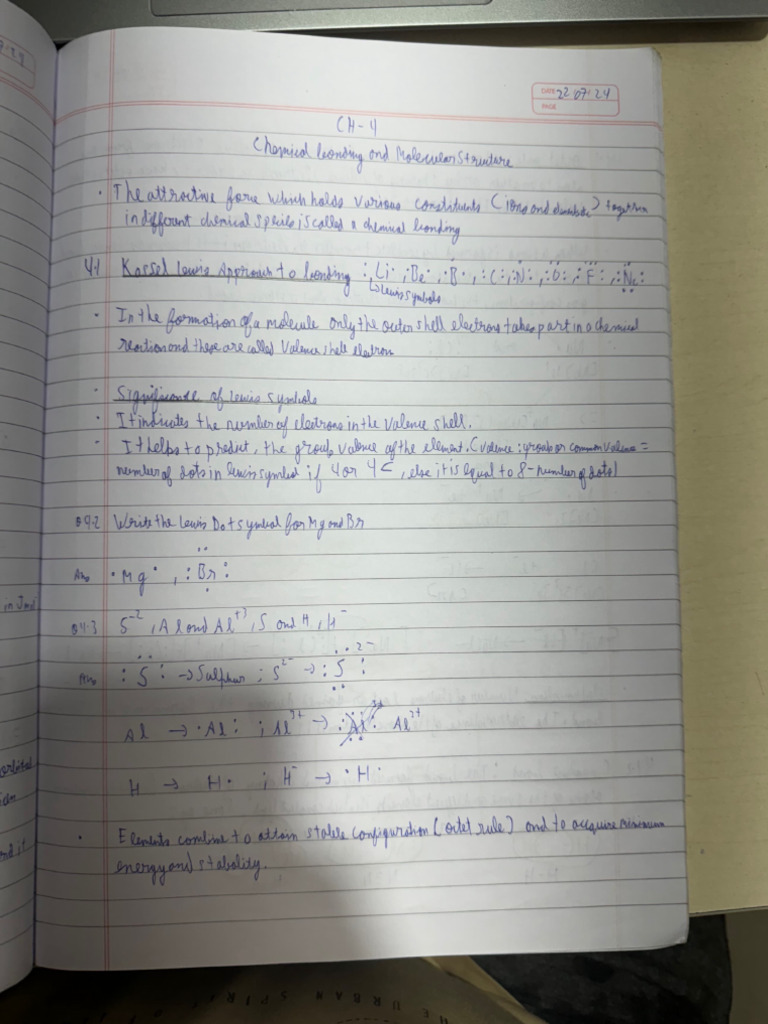 DATE 22.07.24
PAGE
CH-4
Chemical bonding and Molecular Structure
· The attractive force which holds various constituents (ions and ) together
in different chemical species is called a chemical bonding
4.1 Kossel Lewis Approach to bonding :Li·, ·Be·, ·B·, :C:, :N:, :O:, :F:, :Ne:
↳ Lewis symbols
· In the formation of a molecule only the outer shell electrons takes part in a chemical
reaction and these are called Valence shell electron
· Significance of Lewis symbols
· It indicates the number of electrons in the valence shell.
· It helps to predict, the group valence of the element. (Valence : group or common valence =
number of dots in lewis symbol if 4 or 4<, else it is equal to 8-number of dots)
Q4.2 Write the Lewis Dot symbol for Mg and Br
Ans ·Mg· , :Br:
Q4.3 S⁻², Al and Al⁺³, S and H, H⁻
Ans :S: → Sulphur ; S²⁻ → :S: 2-
Al → ·Al: ; Al³⁺ → Al³⁺
H → H· ; H⁻ → ·H·
· Elements combine to attain stable configuration (octet rule) and to acquire minimum
energy and stability.
in
orbital
nd it
THE URBAN SPIR